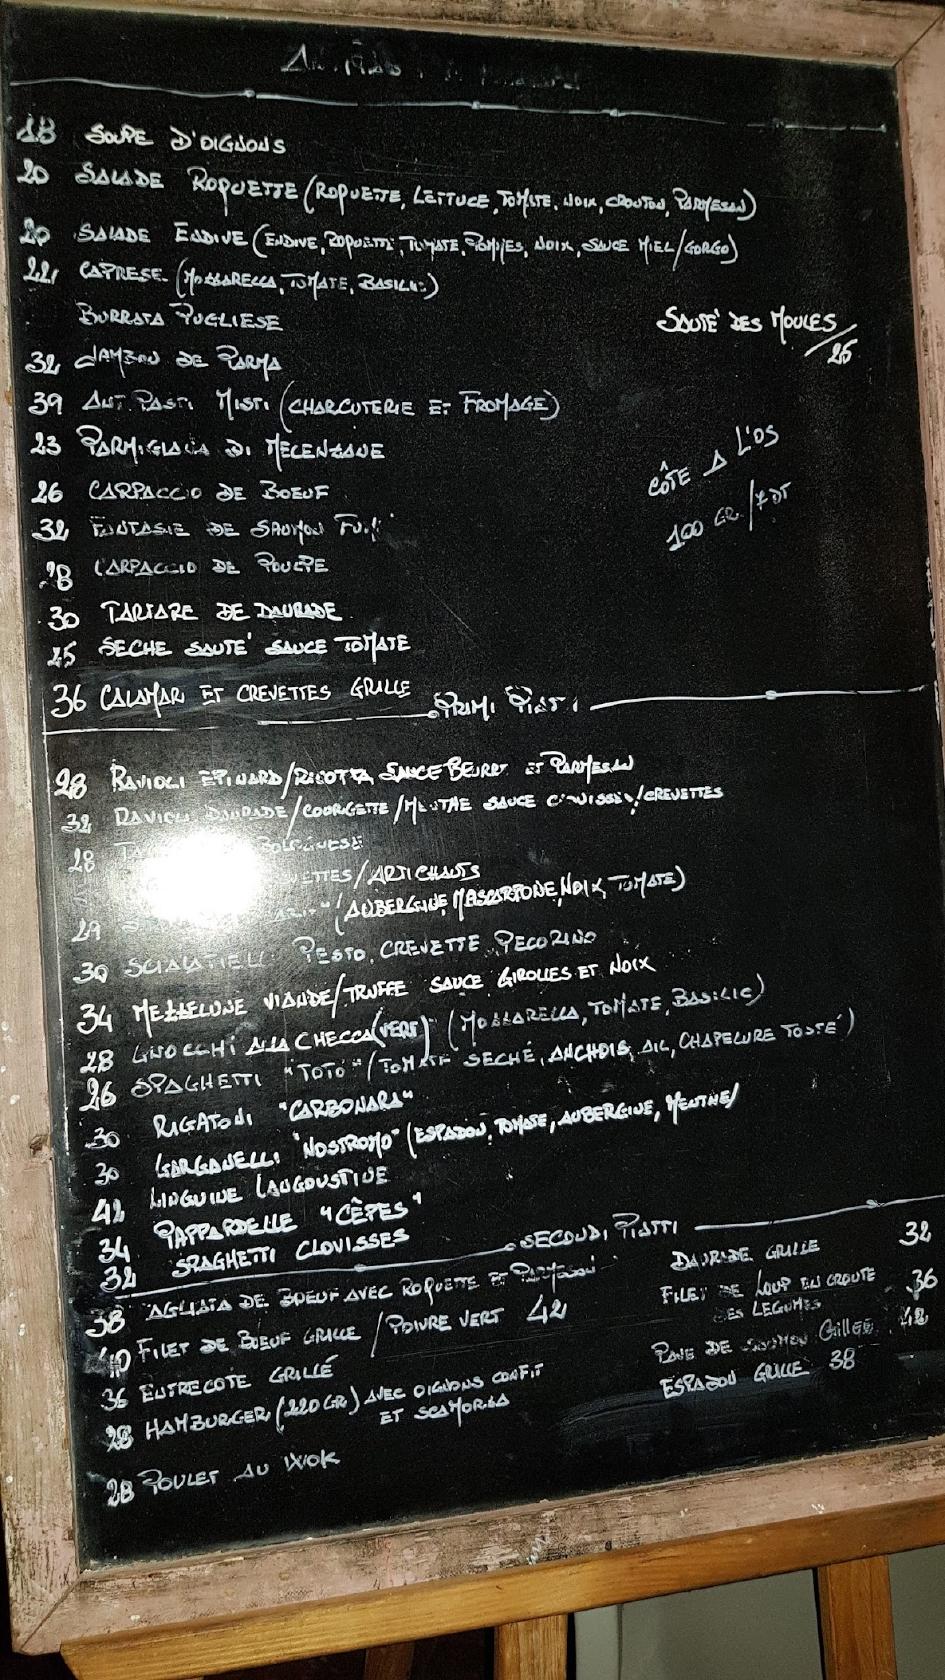 18 SOUPE D'OIGNONS
20 SALADE ROQUETTE (ROQUETTE, LETTUCE, TOMATE, NOIX, CROUTON, PARMESAN)
20 SALADE ENDIVE (ENDIVE, ROQUETTE, TOMATE, POMMES, NOIX, SAUCE MIEL/GORGO)
22 CAPRESE (MOZZARELLA, TOMATE, BASILIC)
BURRATA PUGLIESE
SAUTÉ DES MOULES/
25
32 JAMBON DE PARMA
39 ANTIPASTI MISTI (CHARCUTERIE ET FROMAGE)
23 PARMIGIANA DI MELENZANE
CÔTE A L'OS
100 GR/
26 CARPACCIO DE BOEUF
32 FANTASIE DE SAUMON
28 CARPACCIO DE POULPE
30 TARTARE DE DAURADE
25 SECHE SAUTÉ SAUCE TOMATE
36 CALAMAR ET CREVETTES GRILLE
PRIMI PIATTI
28 RAVIOLI EPINARD/RICOTTA SAUCE BEURRE ET PARMESAN
32 RAVIOLI DAURADE/COURGETTE/MENTHE SAUCE CLOVISSES/CREVETTES
28 BOLOGNESE
/ARTICHAUTS
29 (AUBERGINE, MASCARPONE, NOIX, TOMATE)
30 SCIALATIELLI PESTO, CREVETTE, PECORINO
34 MEZZELUNE VIANDE/TRUFFE SAUCE GIROLLES ET NOIX
28 GNOCCHI ALLA CHECCA (VERT) (MOZZARELLA, TOMATE, BASILIC)
26 SPAGHETTI "TOTO" (TOMATE SECHÉ, ANCHOIS, AIL, CHAPELURE TOSTÉ)
30 RIGATONI "CARBONARA"
30 GARGANELLI "NOSTROMO" (ESPADON, TOMATE, AUBERGINE, MENTHE)
42 LINGUINE LANGOUSTINE
34 PAPPARDELLE "CÊPES"
32 SPAGHETTI CLOVISSES
SECONDI PIATTI
38 TAGLIATA DE BOEUF AVEC ROQUETTE ET PARMESAN
40 FILET DE BOEUF GRILLE / POIVRE VERT 42
36 ENTRECOTE GRILLÉ
28 HAMBURGER (220 GR) AVEC OIGNONS CONFIT
ET SCAMORZA
28 POULET AU WOK
DAURADE GRILLE 32
FILET DE LOUP EN CROUTE 36
DES LEGUMES
PAVE DE SAUMON GRILLÉ
ESPADON GRILLE 38